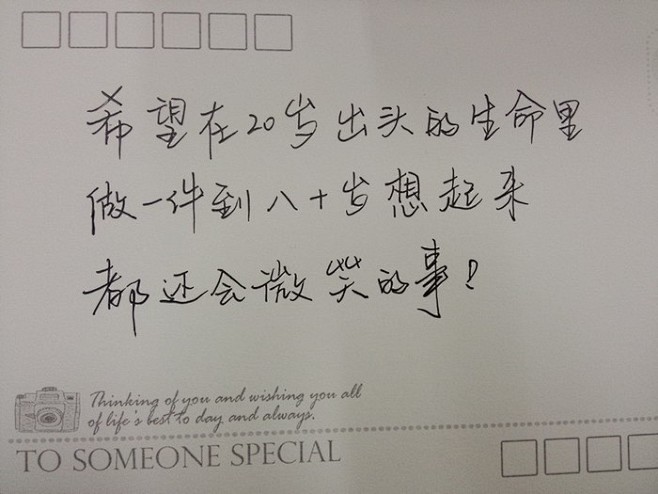 希望在20岁出头的生命里
做一件到八十岁想起来
都还会微笑的事！
Thinking of you and wishing you all
of life's best to day and always.
TO SOMEONE SPECIAL